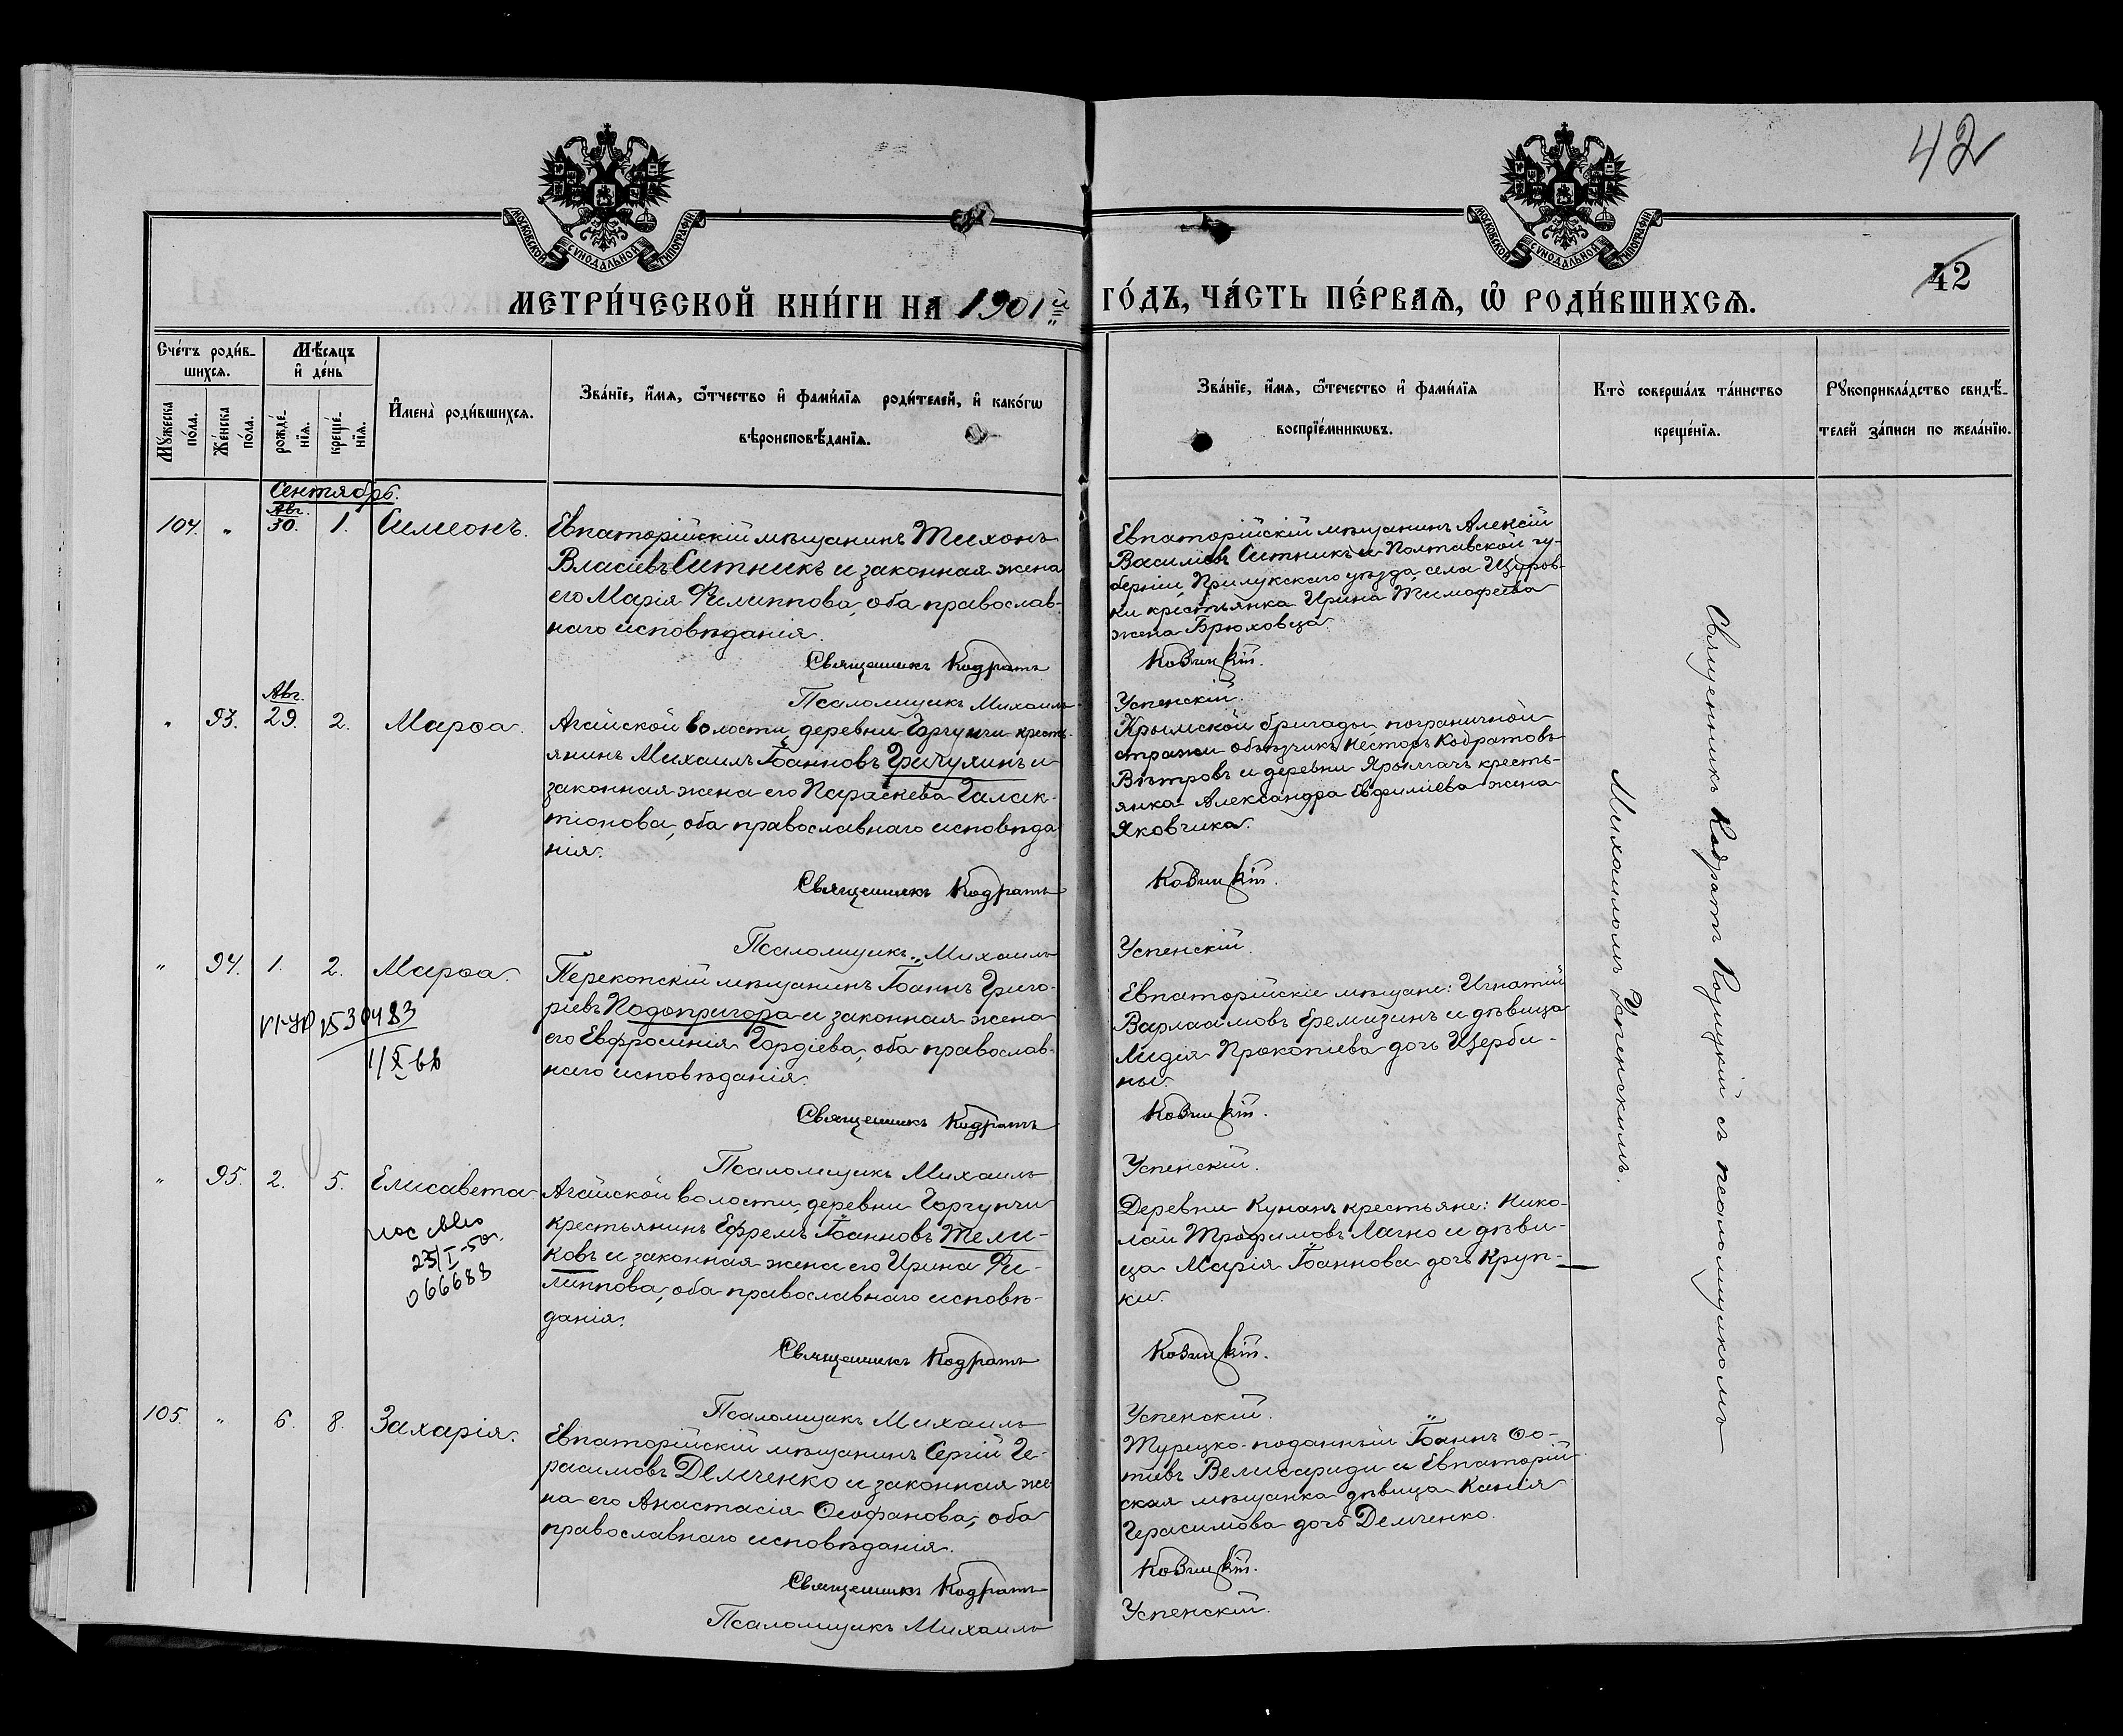 42
МОСКОВСКОЙ СѴНОДАЛЬНОЙ ТИПОГРАФІИ
МОСКОВСКОЙ СѴНОДАЛЬНОЙ ТИПОГРАФІИ
42
МЕТРИ́ЧЕСКОЙ КНИ́ГИ НА 1901й ГО́ДЪ, ЧА́СТЬ ПЕ́РВАѦ, Ѡ҆ РОДИ́ВШИХСѦ.
Сче́тъ роди́в-
шихсѧ.
Мѣ́сѧцъ
и҆ де́нь
Мꙋ́жеска
по́ла.
Же́нска
по́ла.
рожде́-
нїѧ.
креще́-
нїѧ.
И҆мена̀ роди́вшихсѧ.
Зва́нїе, и҆́мѧ, ѻ҆́тчество и҆ фами́лїѧ роди́телей, и҆ како́гѡ
вѣроисповѣ́данїѧ.
Зва́нїе, и҆́мѧ, ѻ҆те́чество и҆ фами́лїѧ
воспрїе́мникѡвъ.
Кто̀ соверша́лъ та́инство
креще́нїѧ.
Рꙋкоприкла́дство свидѣ́-
телей за́писи по жела́нїю.
Сентябрь.
104. " Авг. 30. 1. Симеонъ.
Евпаторійскій мѣщанинъ Тихонъ
Власіевъ Ситникъ и законная жена
его Марія Филиппова, оба православ-
наго исповѣданія.
Священникъ Кодратъ
Псаломщикъ Михаилъ
Евпаторійскій мѣщанинъ Алексій
Васильевъ Ситникъ и Полтавской гу-
берніи, Прилукскаго уѣзда, села Щуров-
ки крестьянка Ирина Тимофеева
жена Брюховца.
Успенскій.
" 93. Авг. 29. 2. Марѳа.
Агайской волости, деревни Горгунчи кресть-
янинъ Михаилъ Іоанновъ Гричулинъ и
законная жена его Параскева Галак-
тіонова, оба православнаго исповѣда
нія.
Священникъ Кодратъ
Псаломщикъ Михаилъ
Крымской бригады пограничной
стражи объѣздчикъ Несторъ Кодратовъ
Вѣтровъ и деревни Ярылгачъ кресть-
янка Александра Евфиміева жена
Яковчика.
Успенскій.
" 94. 1. 2. Марѳа.
VI-УР 1530483
11/X-68
Перекопскій мѣщанинъ Іоаннъ Григо-
ріевъ Подопригора и законная жена
его Евфросинія Гордіева, оба православ-
наго исповѣданія.
Священникъ Кодратъ
Псаломщикъ Михаилъ
Евпаторійскіе мѣщане: Игнатій
Варлаамовъ Еремизинъ и дѣвица
Лидія Прокопіева дочь Щерби-
ны.
Успенскій.
" 95. 2. 5. Елисавета
23/I-50
066688
Агайской волости, деревни Горгунчи
крестьянинъ Ефремъ Іоанновъ Тели-
ковъ и законная жена его Ирина Фи-
липпова, оба православнаго исповѣ-
данія.
Священникъ Кодратъ
Псаломщикъ Михаилъ
Деревни Кунанъ крестьяне: Нико-
лай Трофимовъ Лагно и дѣви-
ца Марія Іоаннова дочь Круп-
ки.
Успенскій.
105. " 6. 8. Захарія.
Евпаторійскій мѣщанинъ Сергій Ге-
расимовъ Демченко и законная же
на его Анастасія Ѳеофанова, оба
православнаго исповѣданія.
Священникъ Кодратъ
Псаломщикъ Михаилъ
Турецко-поданный Іоаннъ Ѳо-
тіевъ Велисариди и Евпаторій-
ская мѣщанка дѣвица Ксенія
Герасимова дочь Демченко.
Успенскій.
Священникъ Кодратъ съ псаломщикомъ
Михаиломъ Успенскимъ.